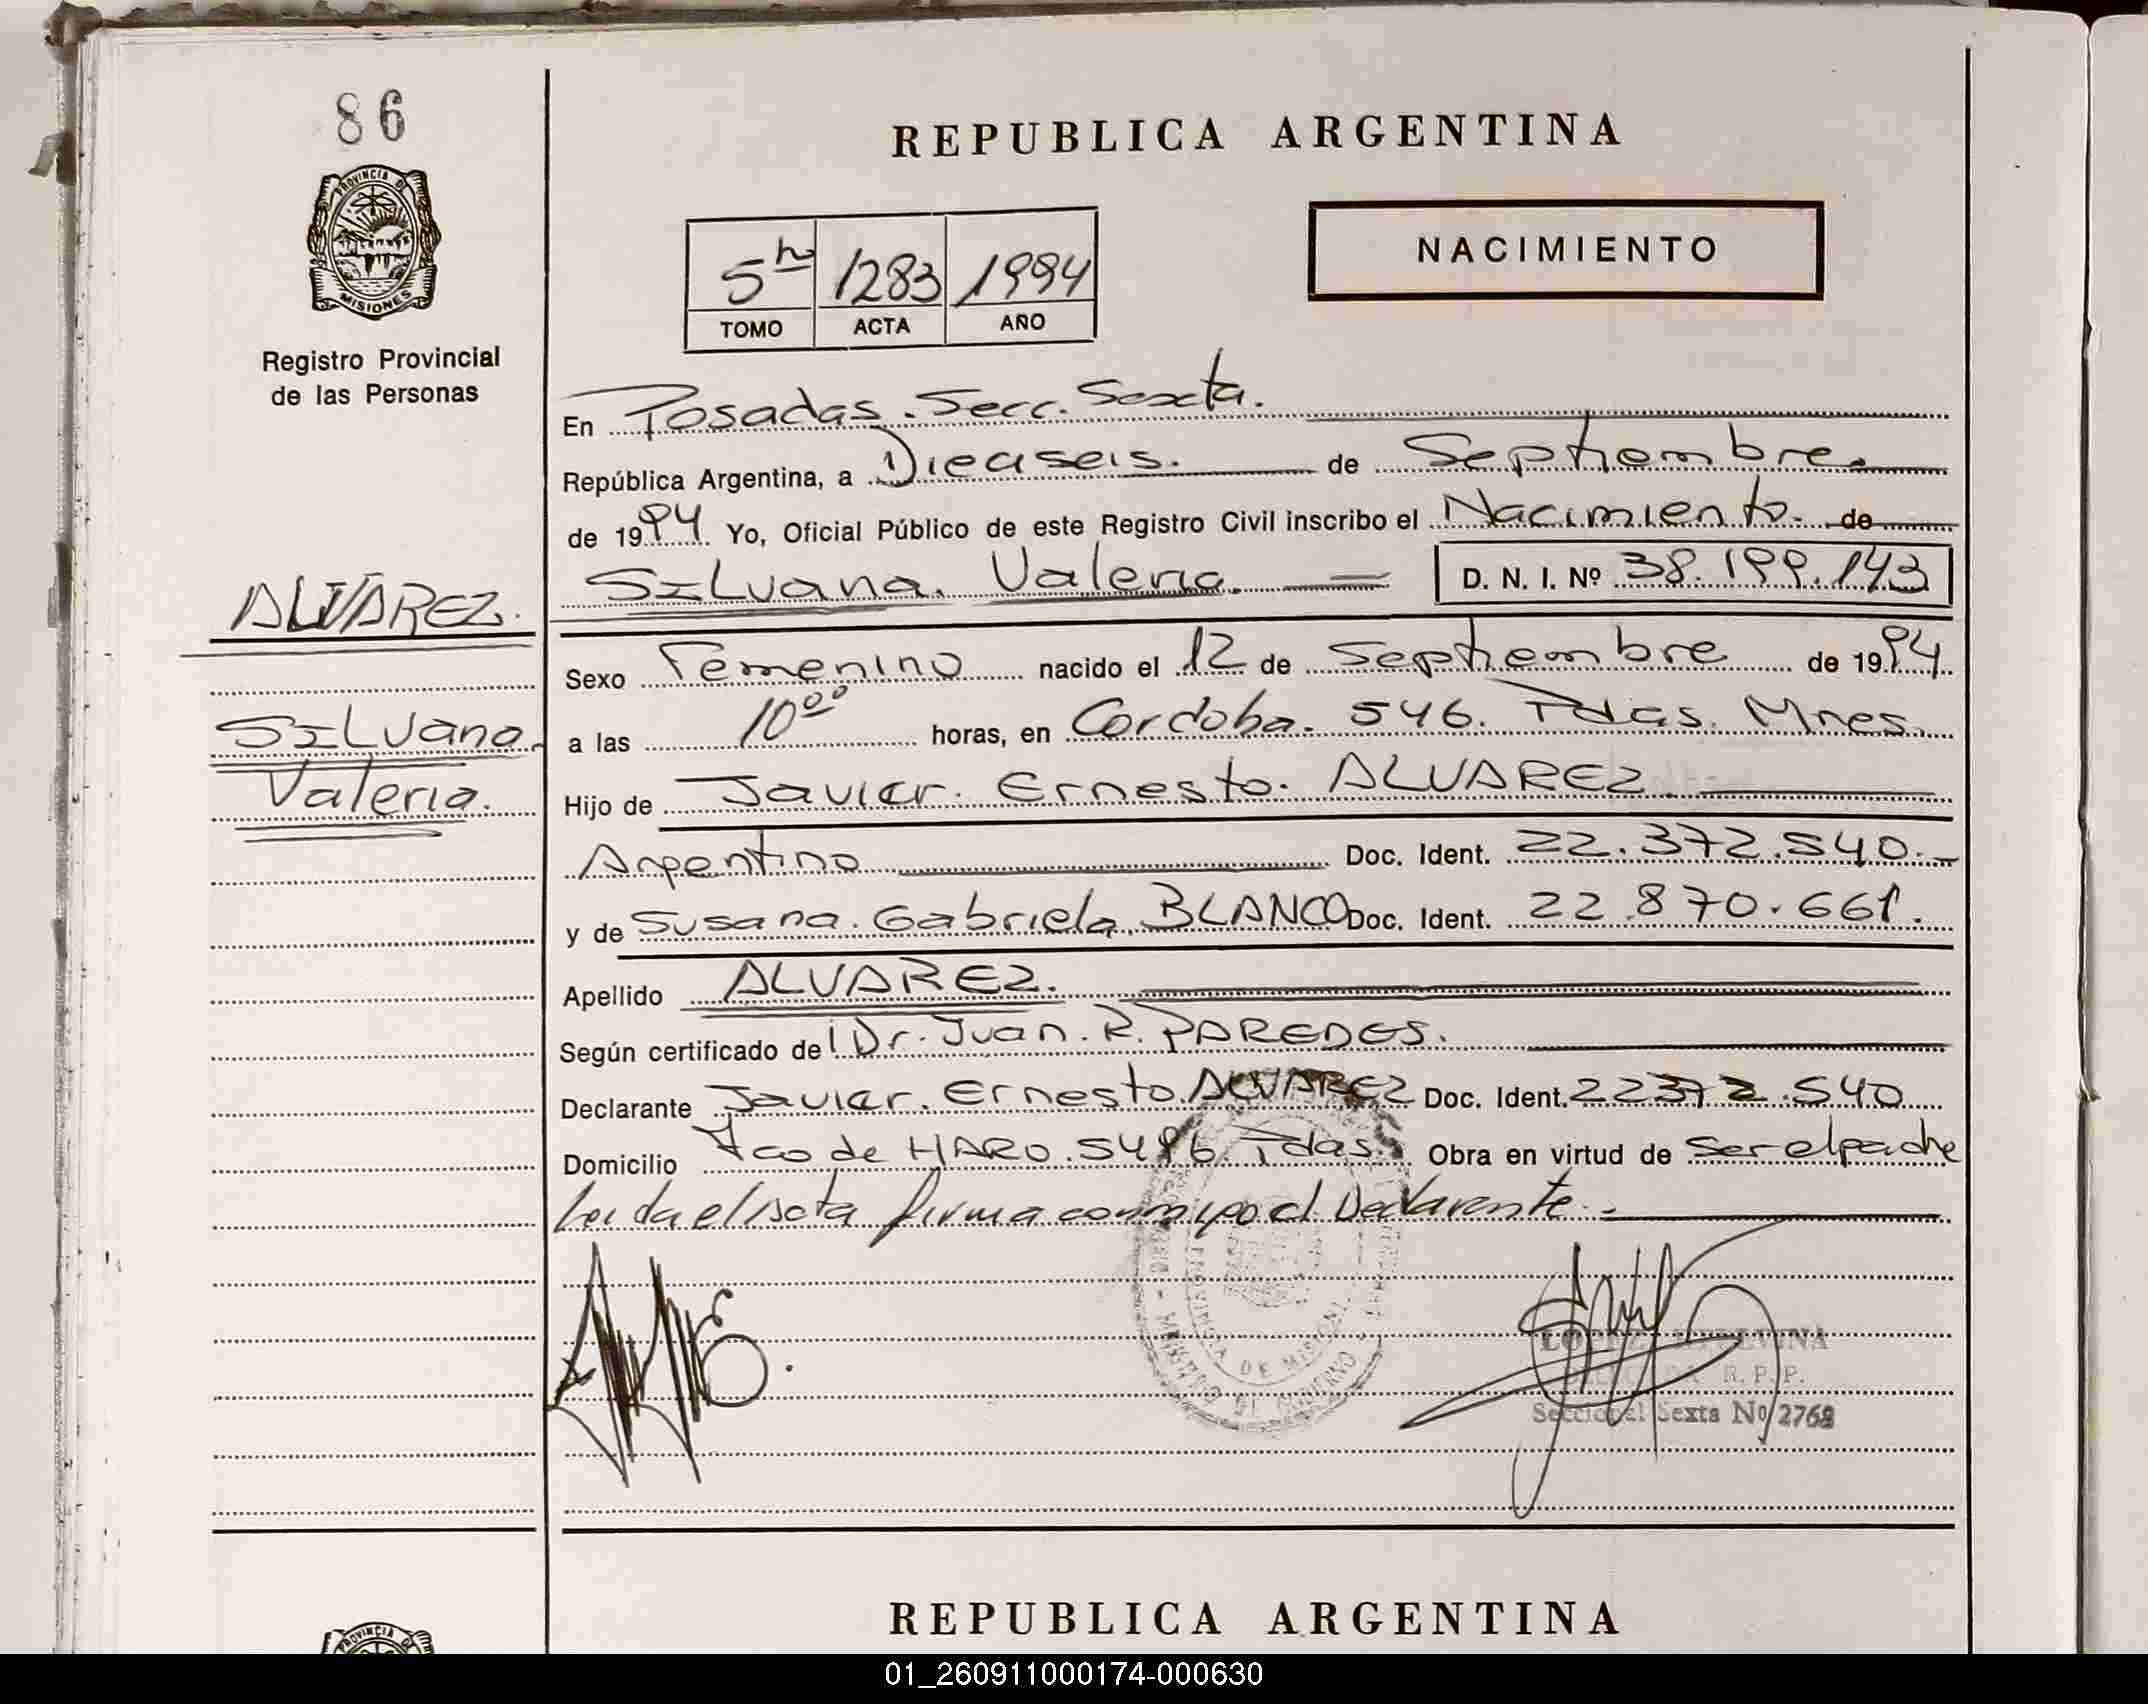 86
PROVINCIA DE
MISIONES
Registro Provincial
de las Personas
REPUBLICA ARGENTINA
NACIMIENTO
5to 1283 1994
TOMO ACTA AÑO
En Posadas. Secc. Sexta.
República Argentina, a Dieciseis. de Septiembre.
de 1994 Yo, Oficial Público de este Registro Civil inscribo el Nacimiento. de
Silvana. Valeria. D. N. I. Nº 38.199.143
ALVAREZ.
Silvana
Valeria.
Sexo Femenino nacido el 12 de Septiembre de 1994
a las 10⁰⁰ horas, en Cordoba. 546. Pdas. Mnes.
Hijo de Javier. Ernesto. ALVAREZ
Argentino Doc. Ident. 22.372.540.-
y de Susana. Gabriela. BLANCO Doc. Ident. 22.870.661.
Apellido ALVAREZ.
Según certificado del Dr. Juan. R. PAREDES.
Declarante Javier. Ernesto. ALVAREZ Doc. Ident. 22372.540
Domicilio Fco de HARO. 5496 Pdas. Obra en virtud de ser el padre
Leida el Acta firma conmigo el Declarante.-
PROVINCIA DE MISIONES
MINISTERIO DE GOBIERNO
R. P. P.
Seccional Sexta Nº 2768
REPUBLICA ARGENTINA
PROVINCIA DE
01_260911000174-000630